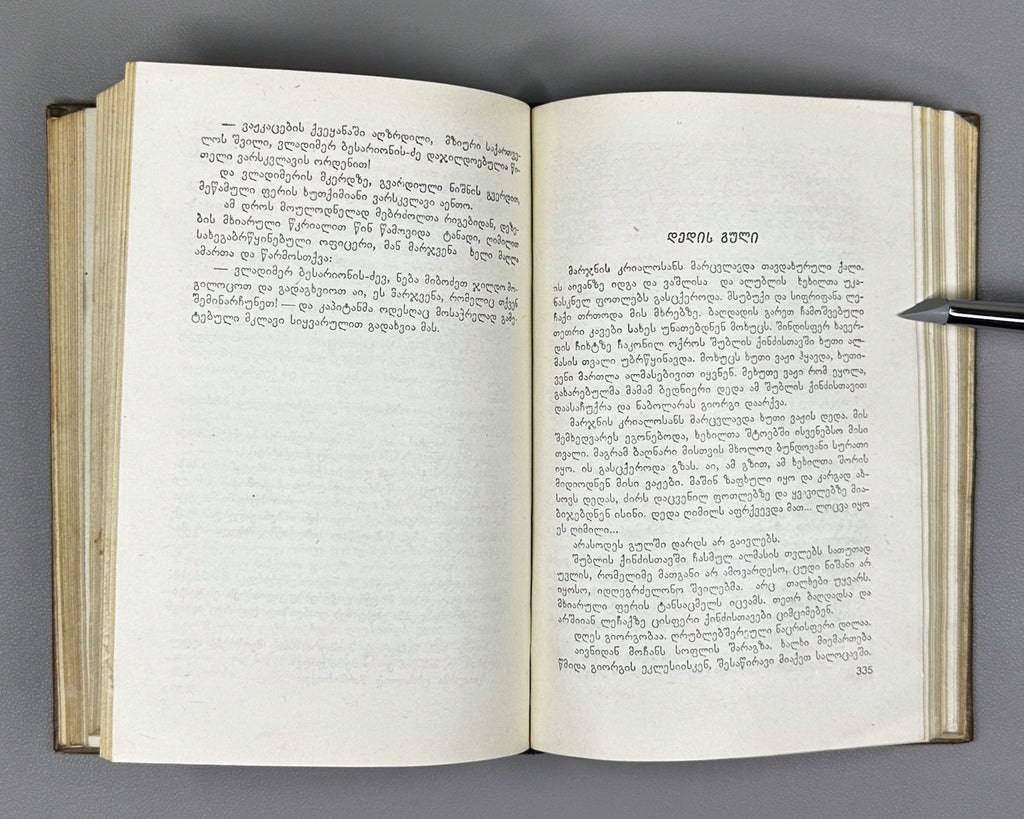 — ვაჟკაცების ქვეყანაში აღზრდილი, მზიური საქართვე-
ლოს შვილი, ვლადიმერ ბესარიონის-ძე დაჯილდოებულია წი-
თელი ვარსკვლავის ორდენით!
და ვლადიმერის მკერდზე, გვარდიული ნიშნის გვერდით,
მეწამული ფერის ხუთქიმიანი ვარსკვლავი აენთო.
ამ დროს მოულოდნელად მებრძოლთა რიგებიდან, დეზე-
ბის მხიარული წკრიალით წინ წამოვიდა ტანადი, ღიმილით
სახეგაბრწყინებული ოფიცერი, მან მარჯვენა ხელი მაღლა
ამართა და წარმოსთქვა:
— ვლადიმერ ბესარიონის-ძევ, ნება მიბოძეთ ჯილდო მო-
გილოცოთ და გადაგხვიოთ აი, ეს მარჯვენა, რომელიც თქვენ
შემინარჩუნეთ! — და კაპიტანმა ოდესღაც მოსაჭრელად გამე-
ტებული მკლავი სიყვარულით გადახვია მას.
დედის გული
მარჯნის კრიალოსანს მარცვლავდა თავდახურული ქალი.
ის აივანზე იდგა და ვაშლისა და ალუბლის ხეხილთა უკა-
ნასკნელ ფოთლებს გასცქეროდა. მსუბუქი და სიფრიფანა ლე-
ჩაქი თრთოდა მის მხრებზე. ბაღდადის გარეთ ჩამოშვებული
თეთრი კავები სახეს უნათებდნენ მოხუცს. შინდისფერ ხავერ-
დის ჩიხტზე ჩაკონილ ოქროს შუბლის ქინძისთავში ხუთი ალ-
მასის თვალი უბრწყინავდა. მოხუცს ხუთი ვაჟი ჰყავდა, ხუთი-
ვენი მართლა ალმასებივით იყვნენ. მეხუთე ვაჟი რომ ეყოლა,
გახარებულმა მამამ ბედნიერი დედა ამ შუბლის ქინძისთავით
დაასაჩუქრა და ნაბოლარას გიორგი დაარქვა.
მარჯნის კრიალოსანს მარცვლავდა ხუთი ვაჟის დედა. მის
შემხედვარეს ეგონებოდა, ხეხილთა შტოებში ისვენებსო მისი
თვალი. მაგრამ ბაღნარი მისთვის მხოლოდ ბუნდოვანი სურათი
იყო. ის გასცქეროდა გზას. აი, ამ გზით, ამ ხეხილთა შორის
მიდიოდნენ მისი ვაჟები. მაშინ ზაფხული იყო და კარგად ახ-
სოვს დედას, ძირს დაცვენილ ფოთლებზე და ყვავილებზე მია-
ბიჯებდნენ ისინი. დედა ღიმილს აფრქვევდა მათ... ლოცვა იყო
ეს ღიმილი...
არასოდეს გულში დარდს არ გაივლებს.
შუბლის ქინძისთავში ჩასმულ ალმასის თვლებს სათუთად
უვლის, რომელიმე მათგანი არ ამოვარდესო, ცუდი ნიშანი არ
იყოსო, იდღეგრძელონო შვილებმა. არც თალხები უყვარს.
მხიარული ფერის ტანსაცმელს იცვამს. თეთრ ბაღდადსა და
არშიიან ლეჩაქზე ცისფერი ქინძისთავები ციმციმებენ.
დღეს გიორგობაა. ღრუბლებშერეული ნაცრისფერი დილაა.
აივნიდან მოჩანს სოფლის შარაგზა. ხალხი მიემართება
წმიდა გიორგის ეკლესიისკენ, შესაწირავი მიაქეთ სალოცავში.
335